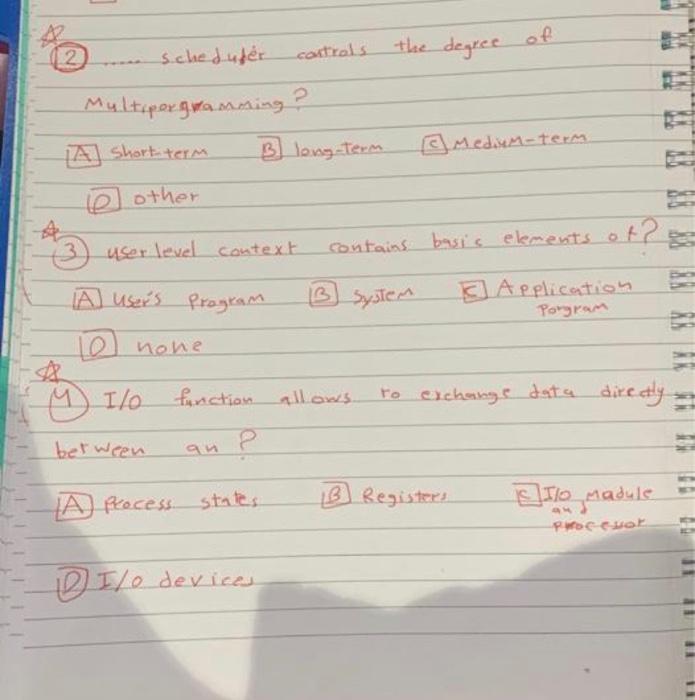 2 ..... scheduler controls the degree of
Multiporgramming?
A Short-term B long-term C Medium-term
D other
3 user level context contains basic elements of?
A User's Program B System C Application
Porgram
D none
4 I/O function allows to exchange data directly
between an ?
A Process states B Registers C I/O Module
and
processor
D I/O devices